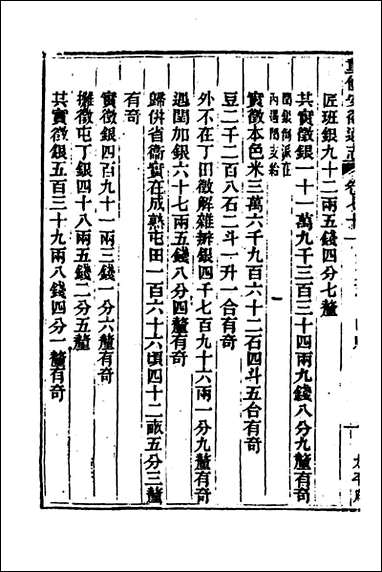 重修安徽通志
卷七十
匠班銀九十二兩五錢四分七釐
其實徵銀一十一萬九千三百三十四兩九錢八分九釐有奇
閏銀衛派在
內遇閏支給
實徵本色米三萬六千九百六十二石四斗五合有奇
豆二千二百八石二斗一升一合有奇
外不在丁田徵解雜辦銀四千七百九十六兩一分九釐有奇
遇閏加銀六十七兩五錢八分四釐有奇
歸併省衛實在成熟屯田一百六十六頃四十二畝五分三釐
有奇
實徵銀四百九十一兩三錢一分六釐有奇
攤徵屯丁銀四十八兩五錢二分五釐
其實徵銀五百三十九兩八錢四分一釐有奇